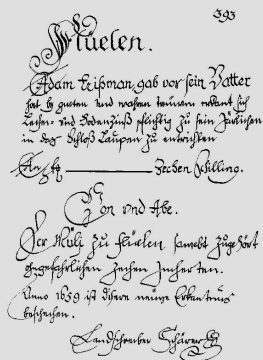 393
Flüelen.
Adam Rißman, gab vor sein Vatter
hat by guten und wahren treuwen erkant sich
Lechen- und Bodenzinß pflichtig zu sein Jürlichen
in das Schloß Laupen zu entrichten
An Schilling.
Zechen Schilling.
Von und Abe.
Der Müli zu Flüelen sambt zuge hört
ohngefahrlichen zechen Jucharten.
Anno 1659 ist disere meinge Erkantnus
bescheichen.
Landschreiber Schärer